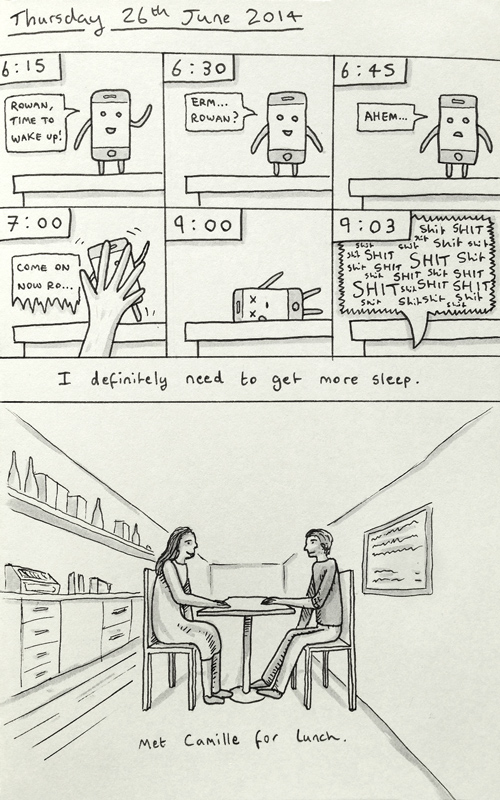 Thursday 26th June 2014
6:15
ROWAN,
TIME TO
WAKE UP!
6:30
ERM...
ROWAN?
6:45
AHEM...
7:00
COME ON
NOW RO...
9:00
9:03
Shit SHIT
shit shit shit Shit shit
shit SHIT SHIT Shit
shit SHIT Shit SHIT
shit SHIT shit SHIT
SHIT shit SHIT SHIT
shit Shit shit shit
I definitely need to get more sleep.
Met Camille for lunch.